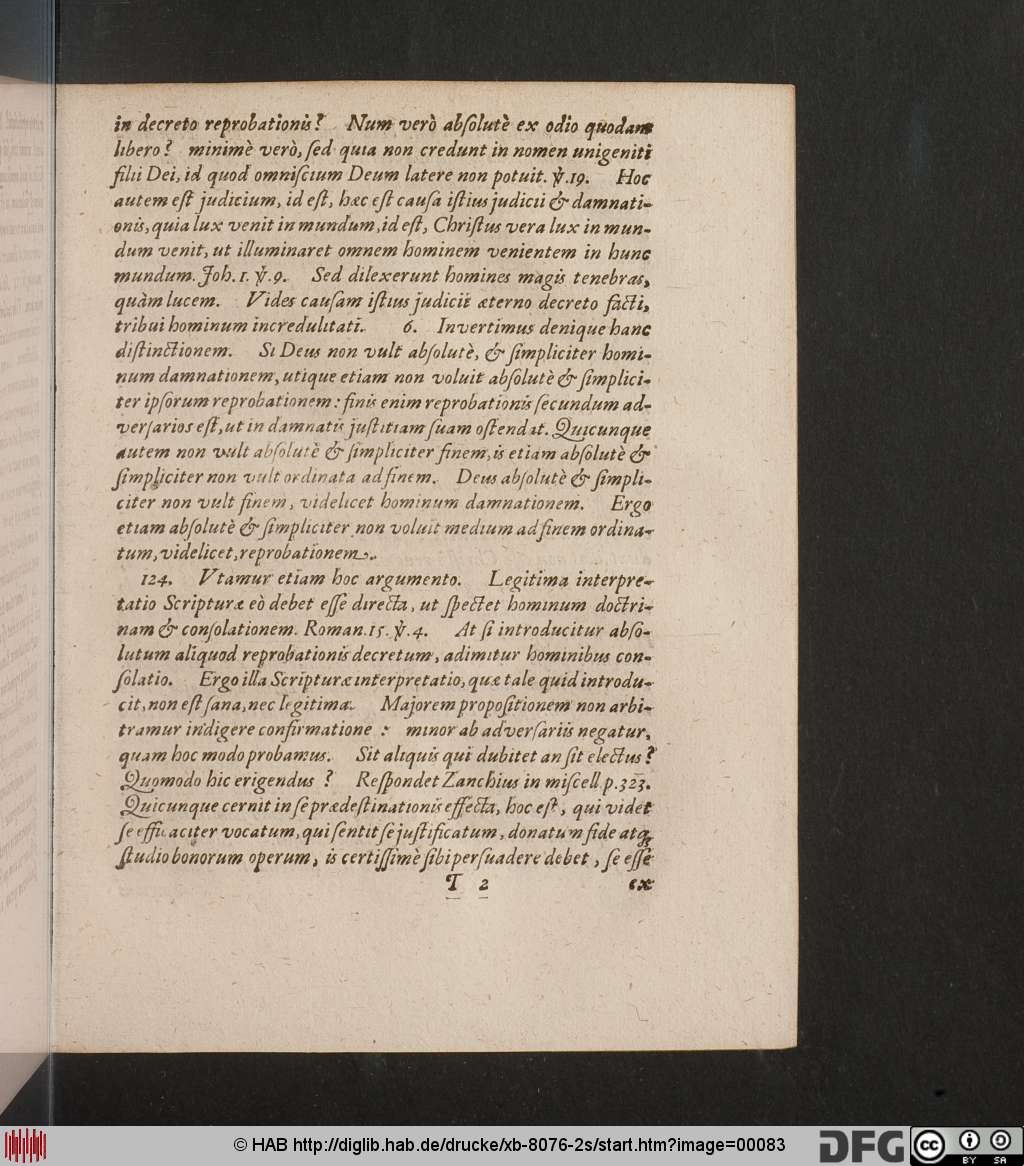 in decreto reprobationis? Num verò abſolutè ex odio quodam
libero? minimè verò, ſed quia non credunt in nomen unigeniti
filii Dei, id quod omniſcium Deum latere non potuit. ꝟ. 19. Hoc
autem eſt judicium, id eſt, hæc eſt cauſa iſtius judicii & damnati-
onis, quia lux venit in mundum, id eſt, Chriſtus vera lux in mun-
dum venit, ut illuminaret omnem hominem venientem in hunc
mundum. Joh. 1. ꝟ. 9. Sed dilexerunt homines magis tenebras,
quàm lucem. Vides cauſam iſtius judicii æterno decreto facti,
tribui hominum incredulitati. 6. Invertimus denique hanc
diſtinctionem. Si Deus non vult abſolutè, & ſimpliciter homi-
num damnationem, utique etiam non voluit abſolutè & ſimplici-
ter ipſorum reprobationem: finis enim reprobationis ſecundum ad-
verſarios eſt, ut in damnatis juſtitiam ſuam oſtendat. Quicunque
autem non vult abſolutè & ſimpliciter finem, is etiam abſolutè &
ſimpliciter non vult ordinata ad finem. Deus abſolutè & ſimpli-
citer non vult finem, videlicet hominum damnationem. Ergo
etiam abſolutè & ſimpliciter non voluit medium ad finem ordina-
tum, videlicet, reprobationem.
124. Utamur etiam hoc argumento. Legitima interpre-
tatio Scripturæ eò debet eſſe directa, ut ſpectet hominum doctri-
nam & conſolationem. Roman. 15. ꝟ. 4. At ſi introducitur abſo-
lutum aliquod reprobationis decretum, adimitur hominibus con-
ſolatio. Ergo illa Scripturæ interpretatio, quæ tale quid introdu-
cit, non eſt ſana, nec legitima. Majorem propoſitionem non arbi-
tramur indigere confirmatione: minor ab adverſariis negatur,
quam hoc modo probamus. Sit aliquis qui dubitet an ſit electus?
Quomodo hic erigendus? Reſpondet Zanchius in miſcell. p. 323.
Quicunque cernit in ſe prædeſtinationis effecta, hoc eſt, qui videt
ſe efficaciter vocatum, qui ſentit ſe juſtificatum, donatum fide atq;
ſtudio bonorum operum, is certiſſimè ſibi perſuadere debet, ſe eſſe
T 2 ex
© HAB http://diglib.hab.de/drucke/xb-8076-2s/start.htm?image=00083
DFG
cc BY SA